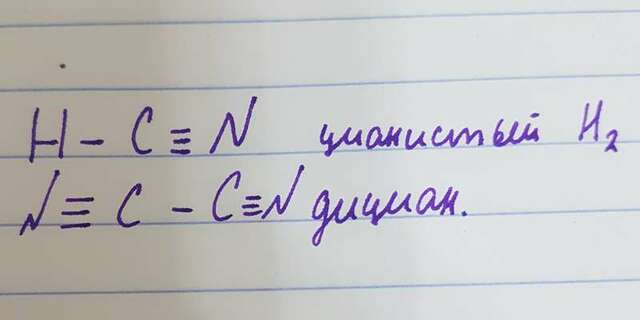 H - C ≡ N цианистый H₂
N ≡ C - C ≡ N дициан.